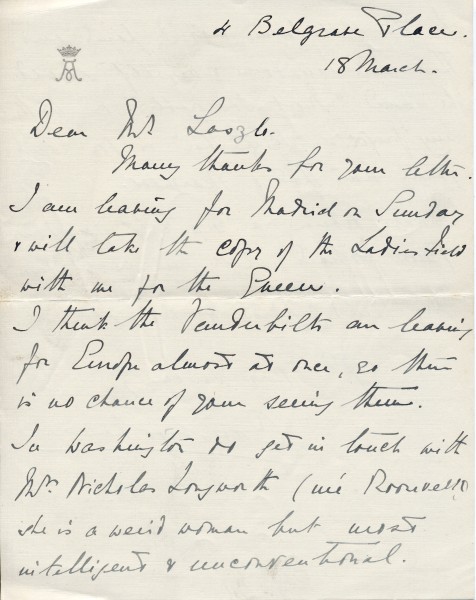 4 Belgrave Place.
18 March.
Dear Mr Laszlo.
Many thanks for your letter.
I am leaving for Madrid on Sunday
& will take the copy of the Ladies Field
with me for the Queen.
I think the Vanderbilts are leaving
for Europe almost at once, so there
is no chance of your seeing them.
In Washington do get in touch with
Mrs Nicholas Longworth (née Roosevelt)
she is a weird woman but most
intelligent & unconventional.